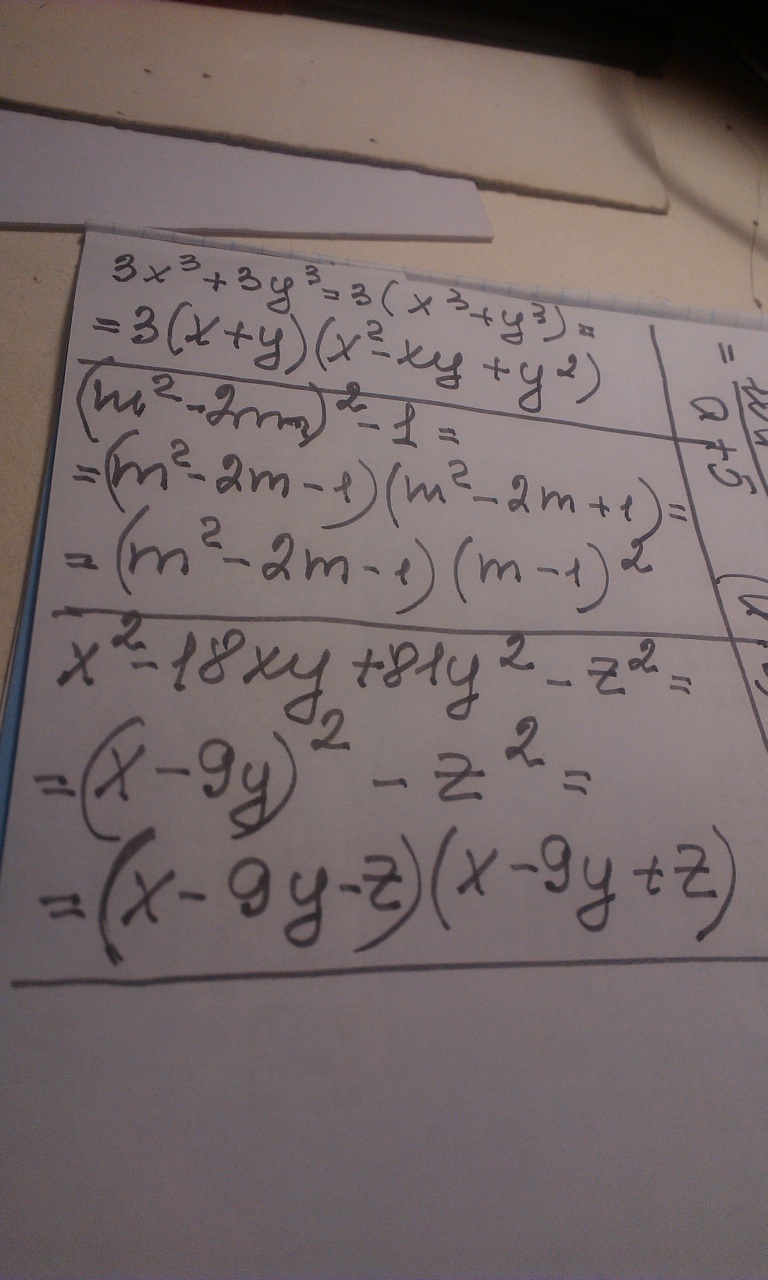 3x³+3y³=3(x³+y³)=
=3(x+y)(x²-xy+y²)
(m²-2m)²-1=
=(m²-2m-1)(m²-2m+1)=
=(m²-2m-1)(m-1)²
x²-18xy+81y²-z²=
=(x-9y)²-z²=
=(x-9y-z)(x-9y+z)
=
a+5